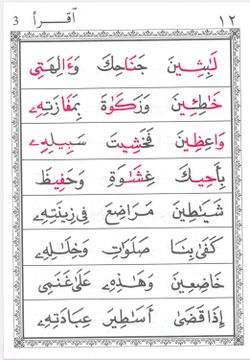 ١٢ اقرأ 3
لَٰبِثِينَ جَنَاحِكَ وَءَالِهَتِي
خَٰطِـِٔينَ وَزَكَوٰةً بِمَفَازَتِهِۦ
وَاعِظِينَ فَخَشِيتَ سَبِيلِهِۦ
بِأَخِيكَ غِشَٰوَةٌ وَحَفِيظٌ
شَيَٰطِينَ مَرَاضِعَ فِي زِينَتِهِۦ
كَفَىٰ بِنَا صَلَوَٰتٌ وَخِلَٰلِهِۦ
خَاضِعِينَ وَهَٰذِهِۦ عَلَىٰ غَنَمِي
إِذَا قَضَىٰ أَسَٰطِيرُ عِبَادَتِهِۦ